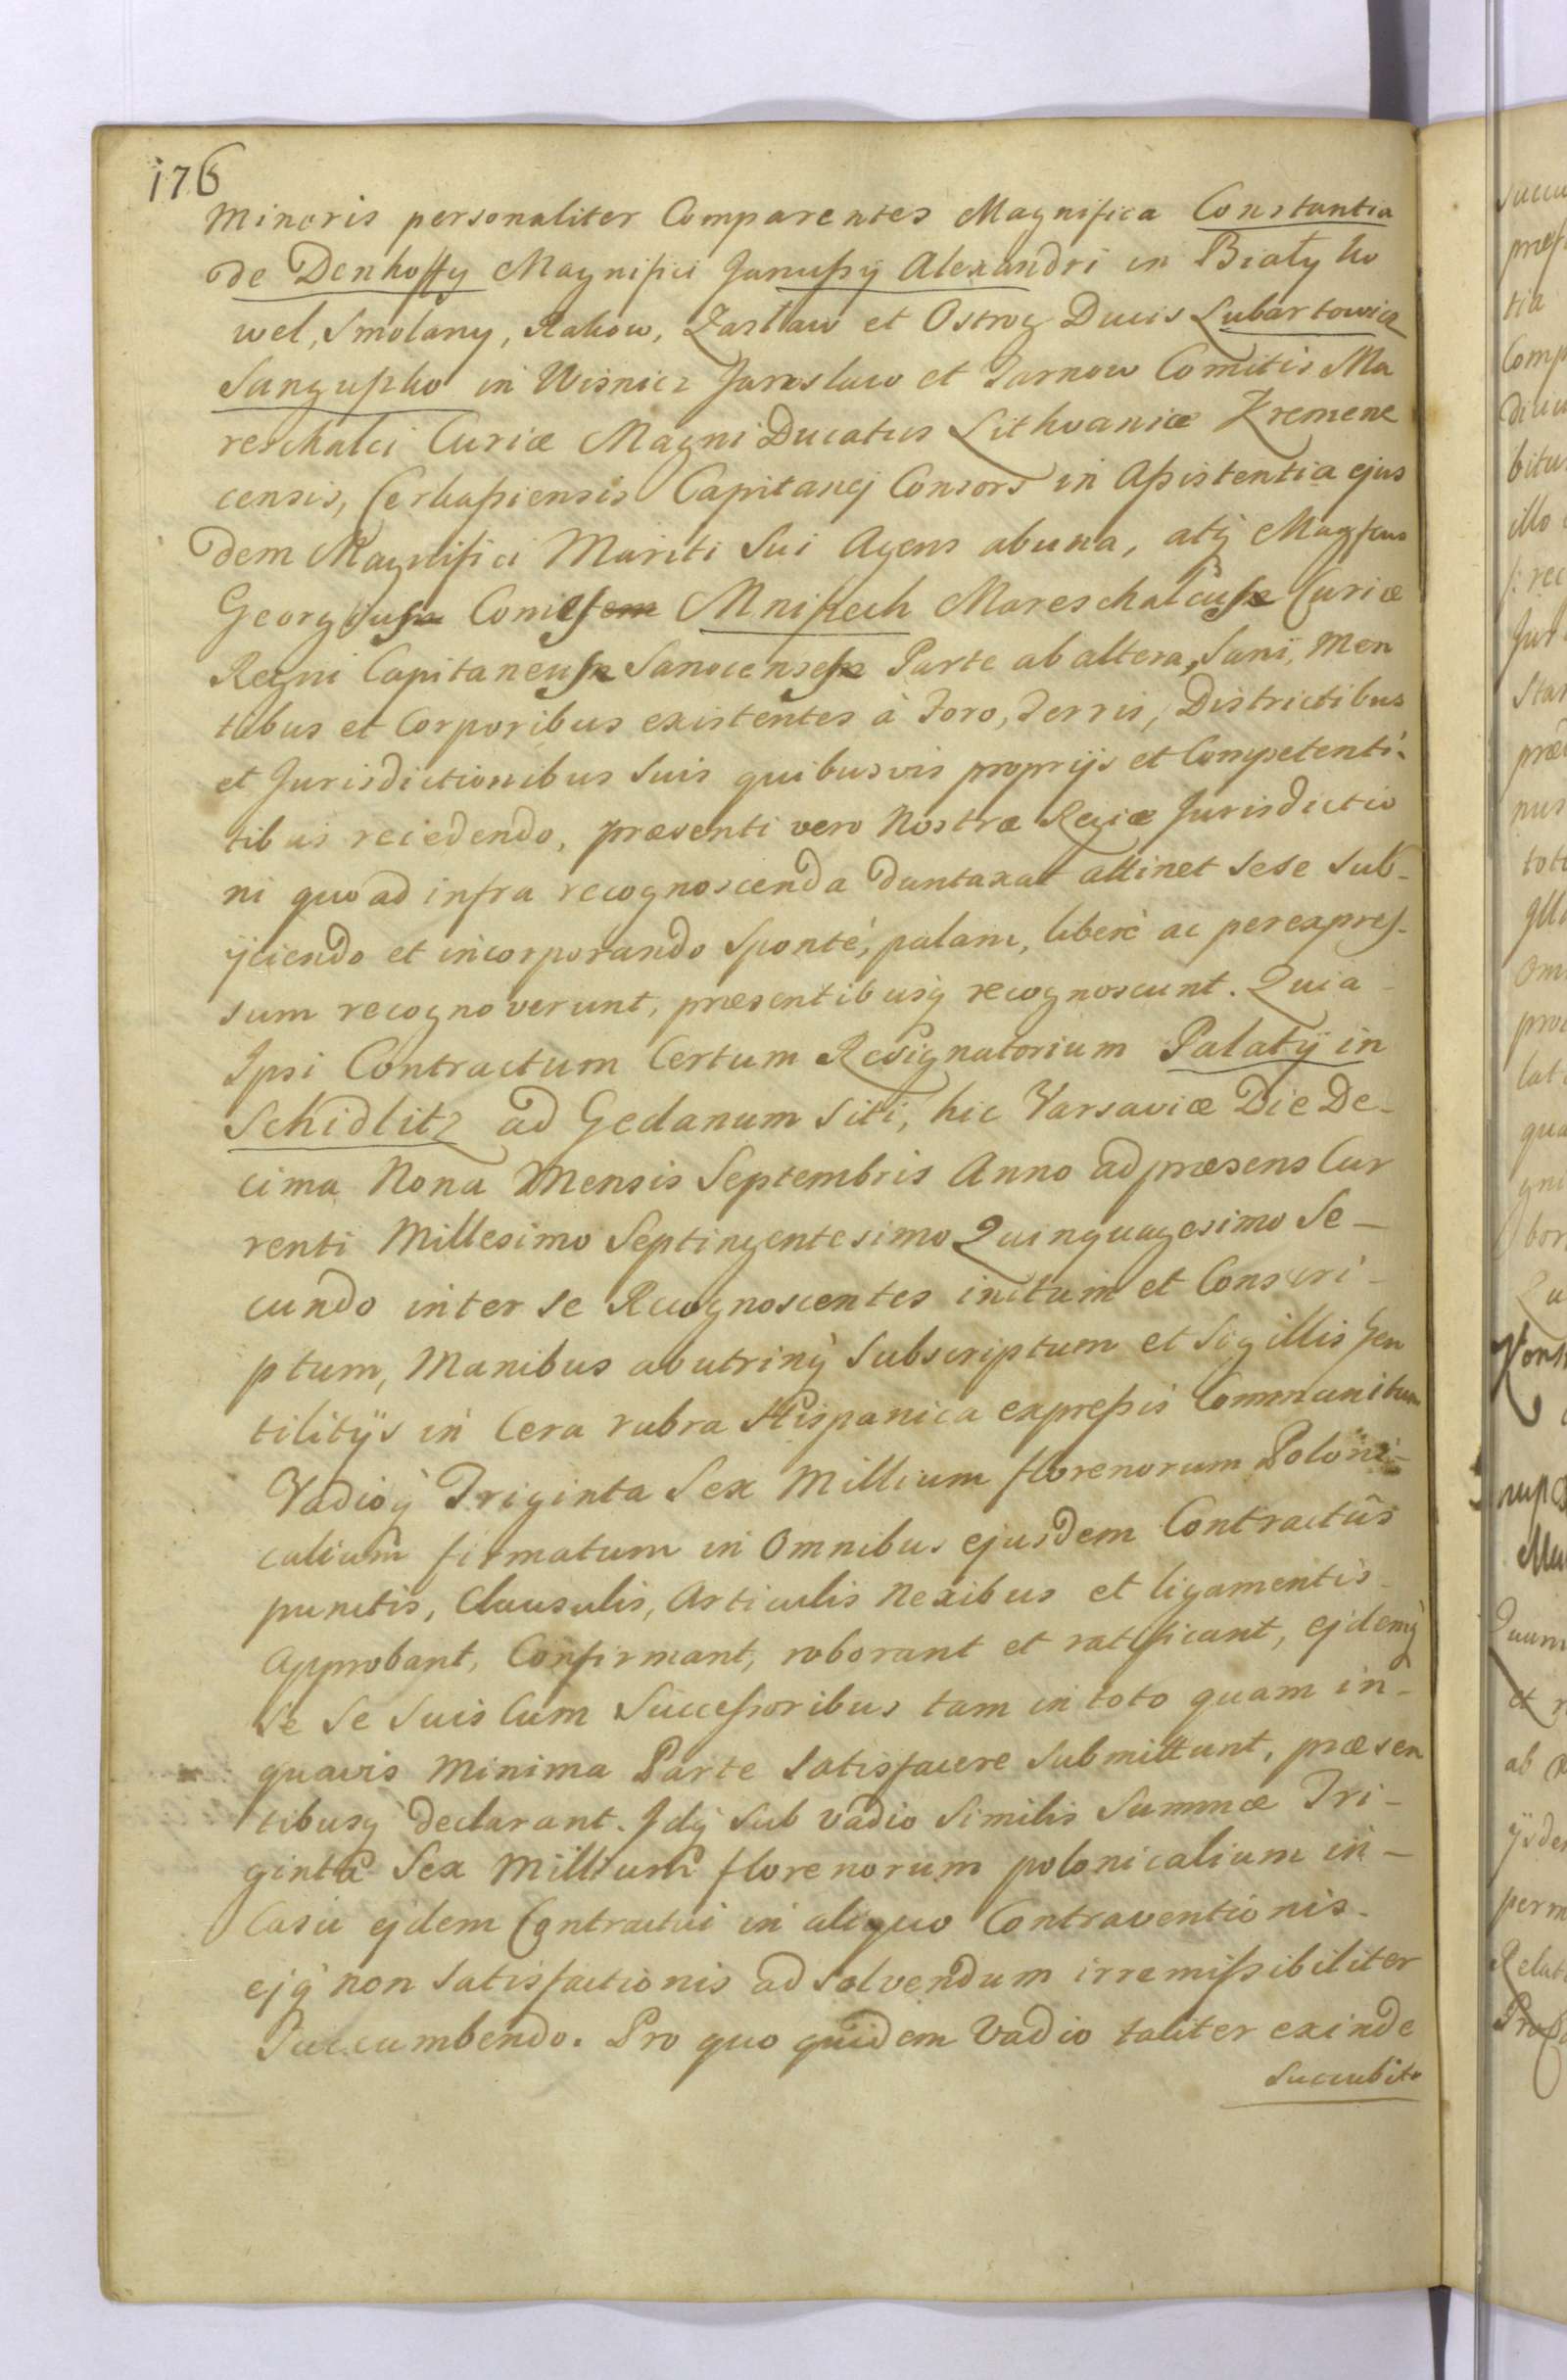 176
Minoris personaliter Comparentes Magnifica Constantia
de Denhoffy Magnifici Janußij Alexandri in Białyko
wel, Smolany, Rakow, Zasław et Ostrog Ducis Lubartowicz
Sangußko in Wisnicz Jaroslaw et Tarnow Comitis Ma
reschalci Curiæ Magni Ducatus Lithvaniæ Kremene
censis, Cerkaßiensis Capitanej Consors in Aßistentia ejus
dem Magnifici Mariti Sui Agens abuna, atq Magfcus
Georgius Comes Mnißech Mareschalcus Curiæ
Regni Capitaneus Sanocenses Parte ab altera, Sani, Men
tibus et Corporibus existentes à Foro, Terris, Districtibus
et Jurisdictionibus Suis quibusvis proprijs et Competenti-
tibus reciedendo, præsenti vero Nostræ Regiæ Jurisdictio
ni quoad infra recognoscenda duntaxat attinet Sese Sub-
ijciendo et incorporando Sponté, palam, liberè ac perexpreſ-
sum recognoverunt, præsentibusq recognoscunt. Quia
Ipsi Contractum Certum Resignatorium Palatij in
Schidlitz ad Gedanum Siti, hic Varsaviæ Die De-
cima Nona Mensis Septembris Anno ad præsens Cur
renti Millesimo Septingentesimo Quinquagesimo Se-
cundo inter se Recognoscentes initum et Conscri-
ptum, Manibus ab utrinq Subscriptum et Sigillis Gen
tilitijs in Cera rubra Hispanica expreßis Communitum
Vadioq Triginta Sex Millium florenorum Poloni-
calium firmatum in Omnibus ejusdem Contractûs
punctis, Clausulis, Articulis Nexibus et ligamentis
Approbant, Confirmant, roborant et ratificant, ejdemq
Se Se Suis Cum Succeßoribus tam in toto quam in-
quavis Minima Parte Satisfacere Submittunt, præsen
tibusq declarant. Idq Sub vadio Similis Summæ Tri-
ginta Sex Millium florenorum polonicalium in-
Casu ejdem Contractui in aliquo Contraventionis
ejq non Satisfactionis ad Solvendum irremißibiliter
Succumbendo. Pro quo quidem Vadio taliter exinde
Succubito